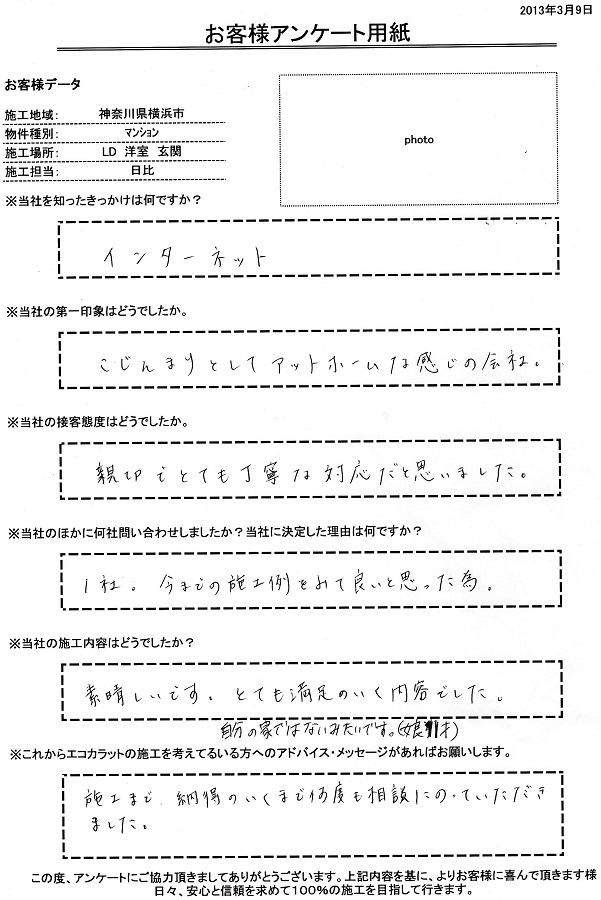 2013年3月9日
お客様アンケート用紙
お客様データ
施工地域: 神奈川県横浜市
物件種別: マンション
施工場所: LD 洋室 玄関
施工担当: 日比
photo
※当社を知ったきっかけは何ですか？
インターネット
※当社の第一印象はどうでしたか。
こじんまりとしてアットホームな感じの会社。
※当社の接客態度はどうでしたか。
親切でとても丁寧な対応だと思いました。
※当社のほかに何社問い合わせしましたか？当社に決定した理由は何ですか？
1社。今までの施工例をみて良いと思った為。
※当社の施工内容はどうでしたか？
素晴しいです。とても満足のいく内容でした。
自分の家ではないみたいです。(娘
※これからエコカラットの施工を考えてるいる方へのアドバイス・メッセージがあればお願いします。
施工まで、納得のいくまで何度も相談にのっていただき
ました。
この度、アンケートにご協力頂きましてありがとうございます。上記内容を基に、よりお客様に喜んで頂きます様
日々、安心と信頼を求めて100％の施工を目指して行きます。